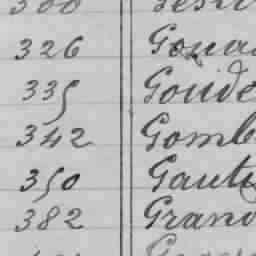 326 Gona
335 Goude
342 Gomb
350 Gaut
382 Gran